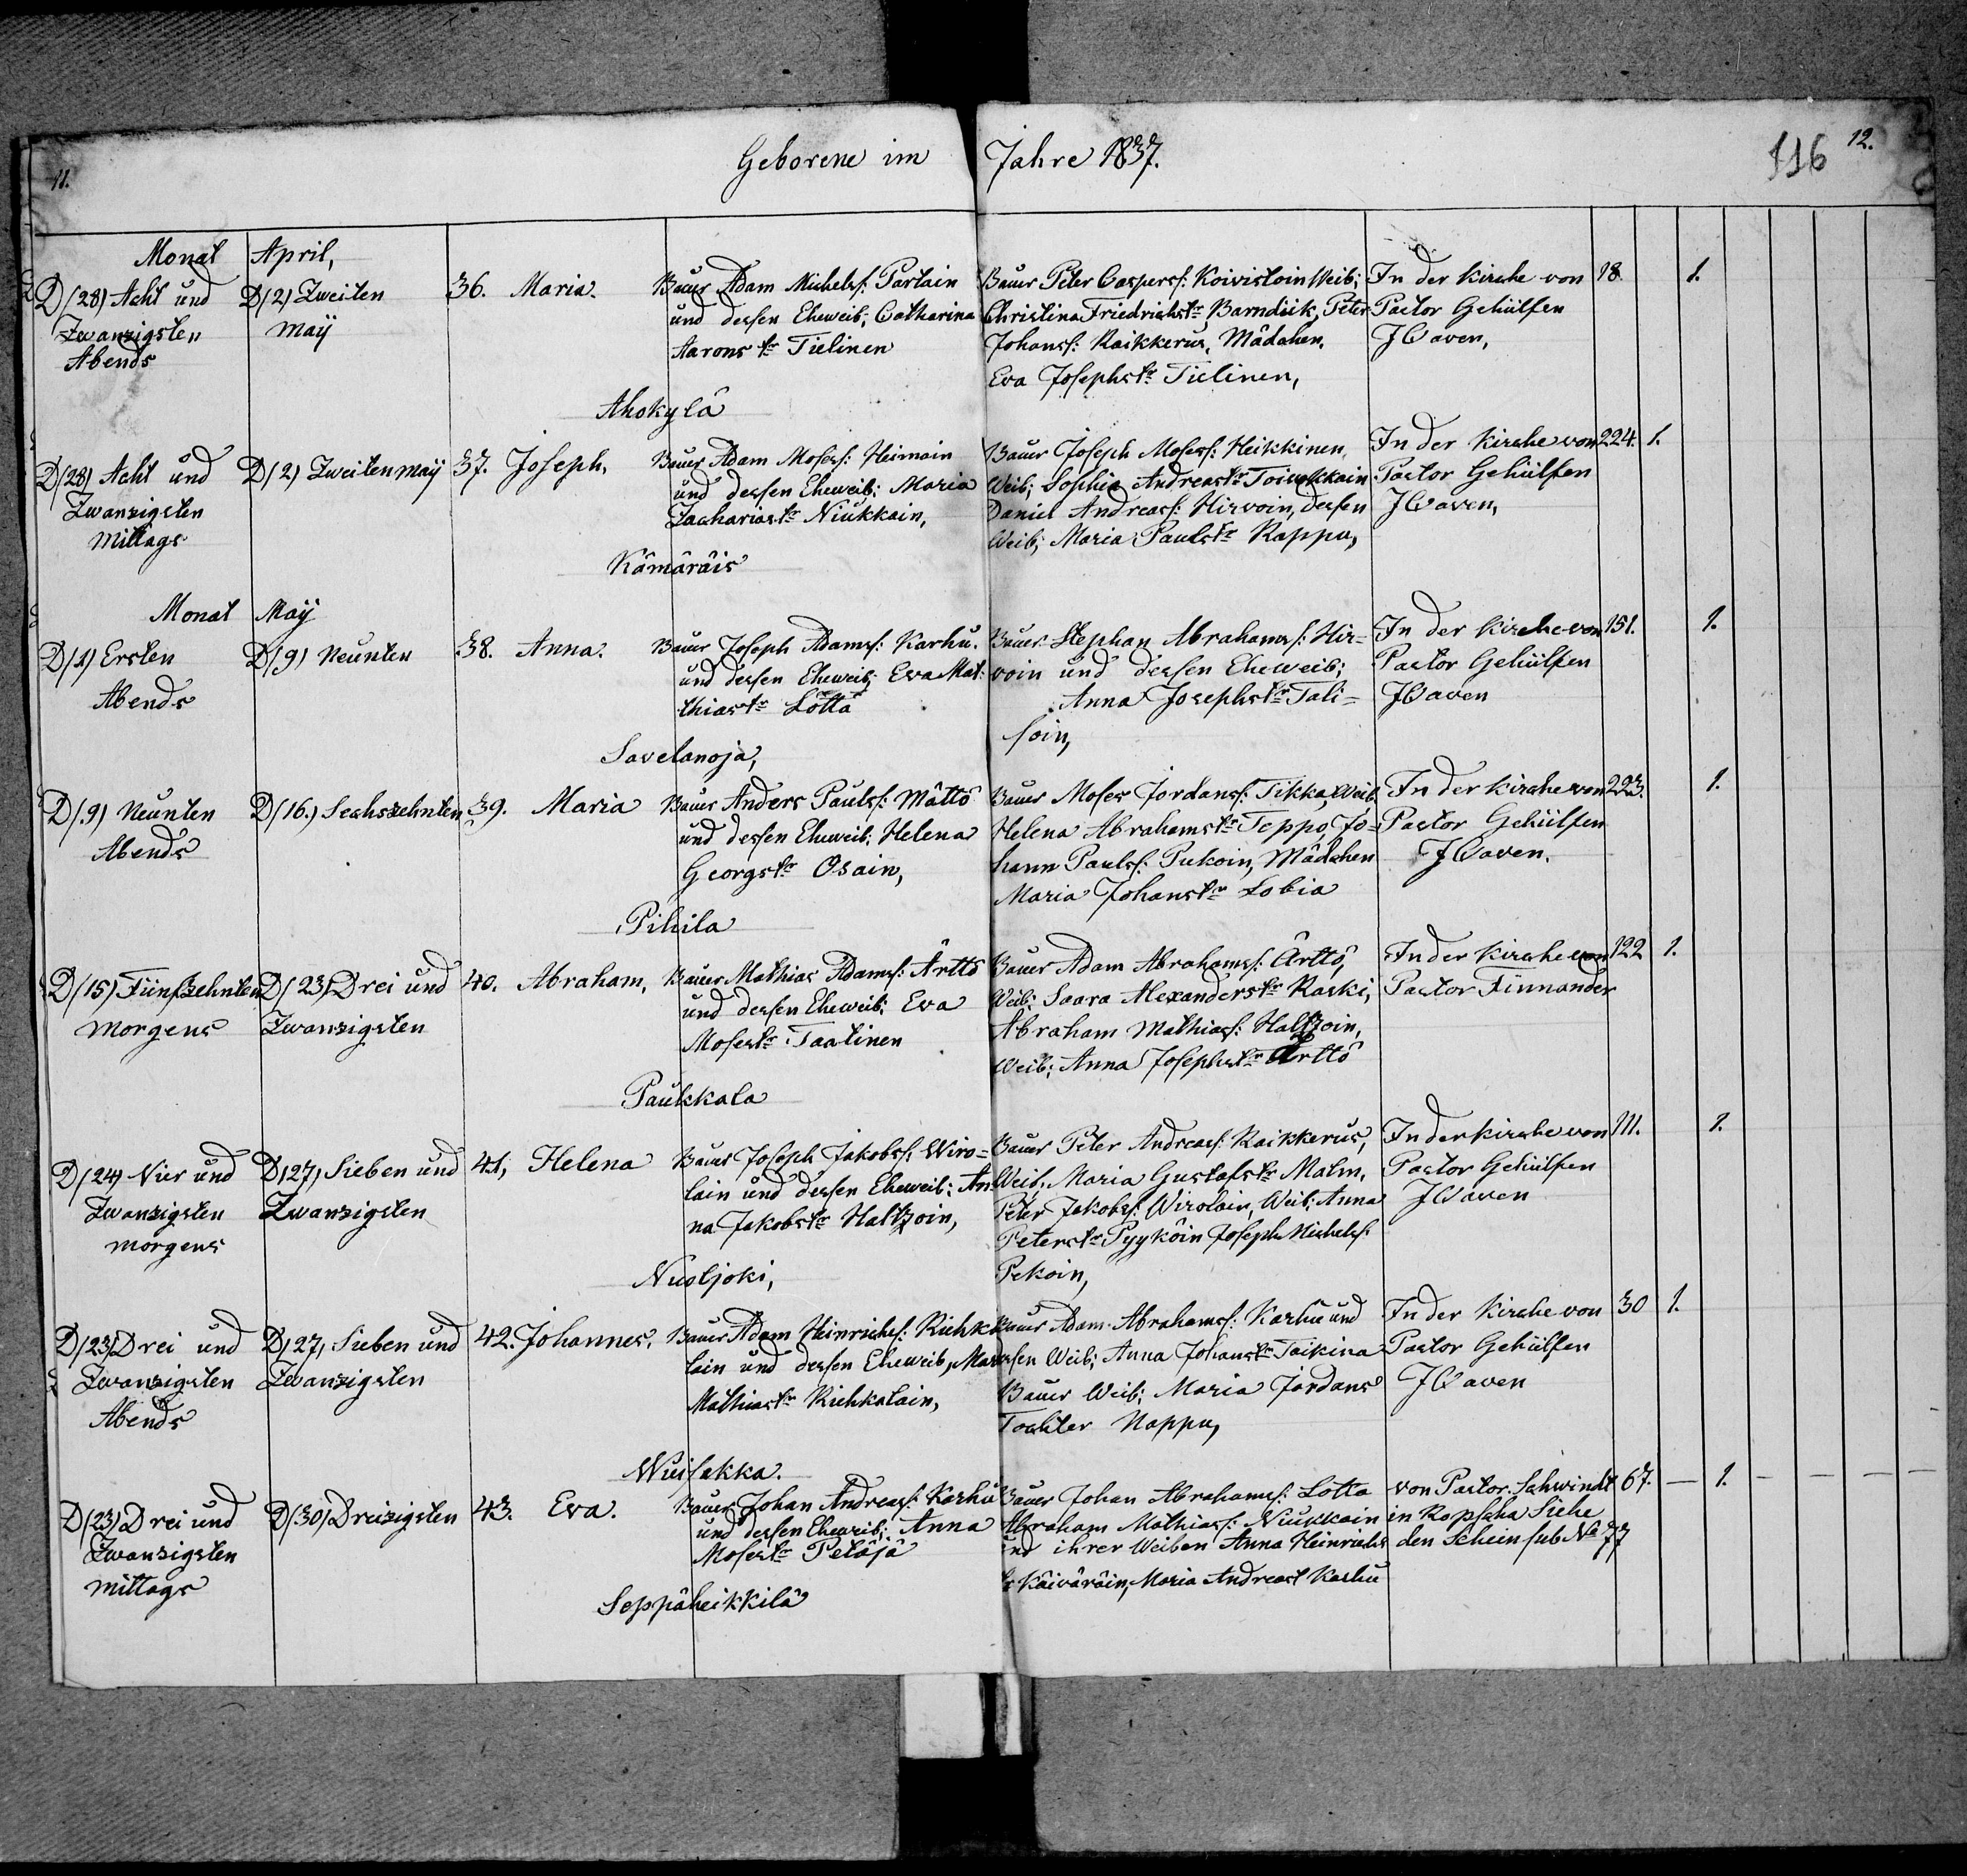 11.
Geborene im Jahre 1837.
116 12.
Monat April,
D/(28) Acht und
Zwanzigsten
Abends
D/(2) Zweiten
Maÿ
36. Maria.
Bauer Adam Michelsſ: Partain
und dessen Eheweib; Catharina
Aarons tr Tielinen
Bauer Peter Caspersſ: Koivistoin Weib;
Christina Friedrichstr Barndük, Peter
Johansſ: Raikkerus, Mädchen,
Eva Josephstr Tielinen,
In der Kirche von
Pastor Gehülfen
18. 1.
Ahokylä
D/(28) Acht und
Zwanzigsten
Mittags
D/(2) Zweiten Maÿ
37. Joseph,
Bauer Adam Mosesſ: Heimoin
und dessen Eheweib; Maria
Zachariastr Niukkain,
Bauer Joseph Mosesſ: Heikkinen,
Weib; Sophia Andreastr Toiwokkain
Daniel Andreasſ: Hirvoin, dessen
Weib; Maria Paulstr Rappu,
In der Kirche von
Pastor Gehülfen
224. 1.
Kämäräis
Monat Maÿ
D/(1) Ersten
Abends
D/(9) Neunten
38. Anna.
Bauer Joseph Adamsſ: Karhu.
und dessen Eheweib; Eva Mat:
thiastr Lötta
Bauer Stephan Abrahamsſ: Hir=
voin und dessen Eheweib;
Anna Josephstr Tali=
soin,
In der Kirche von
Pastor Gehülfen
151. 1.
Savelanoja,
D/(9) Neunten
Abends
D/(16.) Sechszehnten
39. Maria
Bauer Anders Paulsſ: Mättö
und dessen Eheweib; Helena
Georgstr Osain,
Bauer Moses Jordansſ: Tikka, Weib
Helena Abrahamstr Teppo, Jo=
hann Paulsſ: Pukoin, Mädchen
Maria Johanstr Lobia
In der Kirche von
Pastor Gehülfen
223. 1.
Pihila
D/(15) Fünfzehnten
Morgens
D/(23) Drei und
Zwanzigsten
40. Abraham,
Bauer Mathias Adamsſ: Ärttö
und dessen Eheweib; Eva
Mosestr Taatinen
Bauer Adam Abrahamsſ: Ärttö,
Weib; Saara Alexanderstr Raski,
Abraham Mathiasſ: Haltzoin,
Weib; Anna Josephstr Ärttö
In der Kirche von
Pastor Finnander
122 1.
Paukkala
D/(24) Vier und
Zwanzigsten
Morgens
D/(27) Sieben und
Zwanzigsten
41, Helena
Bauer Joseph Jakobsſ: Wiro=
lain und dessen Eheweib; An=
na Jakobstr Haltzoin,
Bauer Peter Andreasſ: Raikkerus,
Weib; Maria Gustafstr Malm,
Peter Jakobsſ: Wirolain, Weib; Anna
Peterstr Pyyköin Joseph Michelsſ:
Pekoin,
In der Kirche von
Pastor Gehülfen
111. 1.
Nuoljoki,
D/(23) Drei und
Zwanzigsten
Abends
D/(27) Sieben und
Zwanzigsten
42. Johannes.
Bauer Adam Heinrichsſ: Richka
lain und dessen Eheweib,
Mathiastr Richkalain,
Bauer Adam Abrahamsſ: Karhu und
dessen Weib; Anna Johanstr Taikina
Bauer Weib; Maria Jordans
Tochter Nappu,
In der Kirche von
Pastor Gehülfen
30 1.
Wuisakka.
D/(23) Drei und
Zwanzigsten
Mittags
D/(30) Dreizigsten
43. Eva.
Bauer Johan Andreasſ: Karhu
und dessen Eheweib; Anna
Mosestr Petäjä
Bauer Johan Abrahamsſ: Lotta
Abraham Mathiasſ: Niukkain
und ihrer Weiben Anna Heinrichs
tr Käiväräin, Maria Andreast Karhu
von Pastor Schwindt
in Ropscha Siehe
den Schein sub No 77
67. — 1. — — — —
Seppäheikkilä